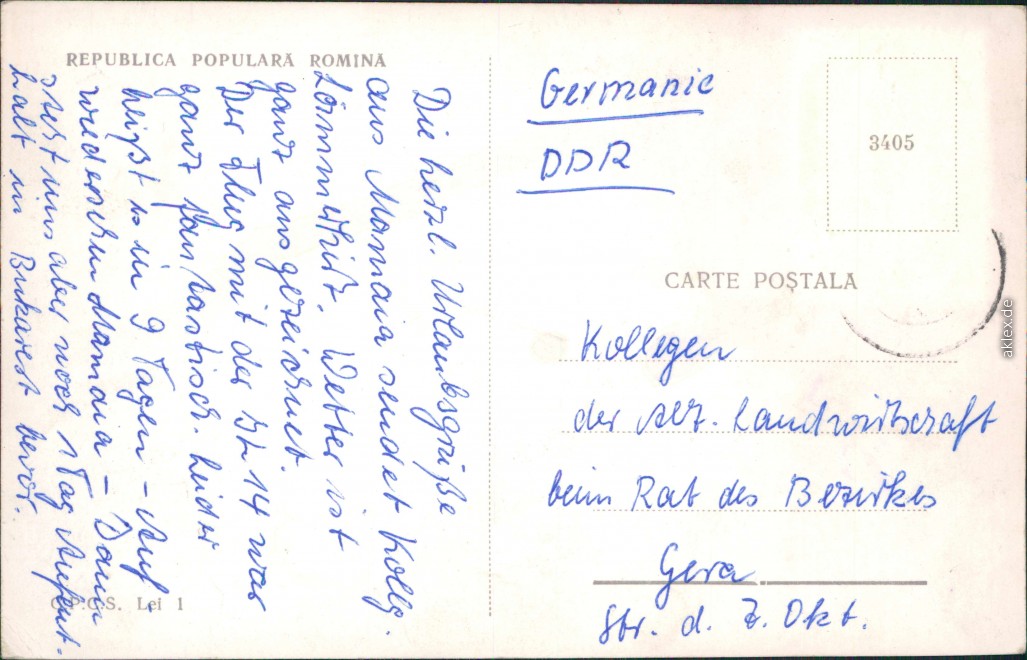 REPUBLICA POPULARĂ ROMINĂ
Die herzl. Urlaubsgrüße
aus Mamaia sendet Kollg.
Wetter ist
ganz ausgezeichnet.
Der Flug mit der IL 14 war
ganz fantastisch. Leider
heißt es in 9 Tagen - Auf
wiedersehen Mamaia - Dann
steht uns aber noch 1 Tag Aufent-
halt in Bukarest bevor.
C.P.C.S. Lei 1
Germanie
DDR
3405
CARTE POȘTALA
Kollegen
der Abt. Landwirtschaft
beim Rat des Bezirkes
Gera
Str. d. 7. Okt.
aklex.de